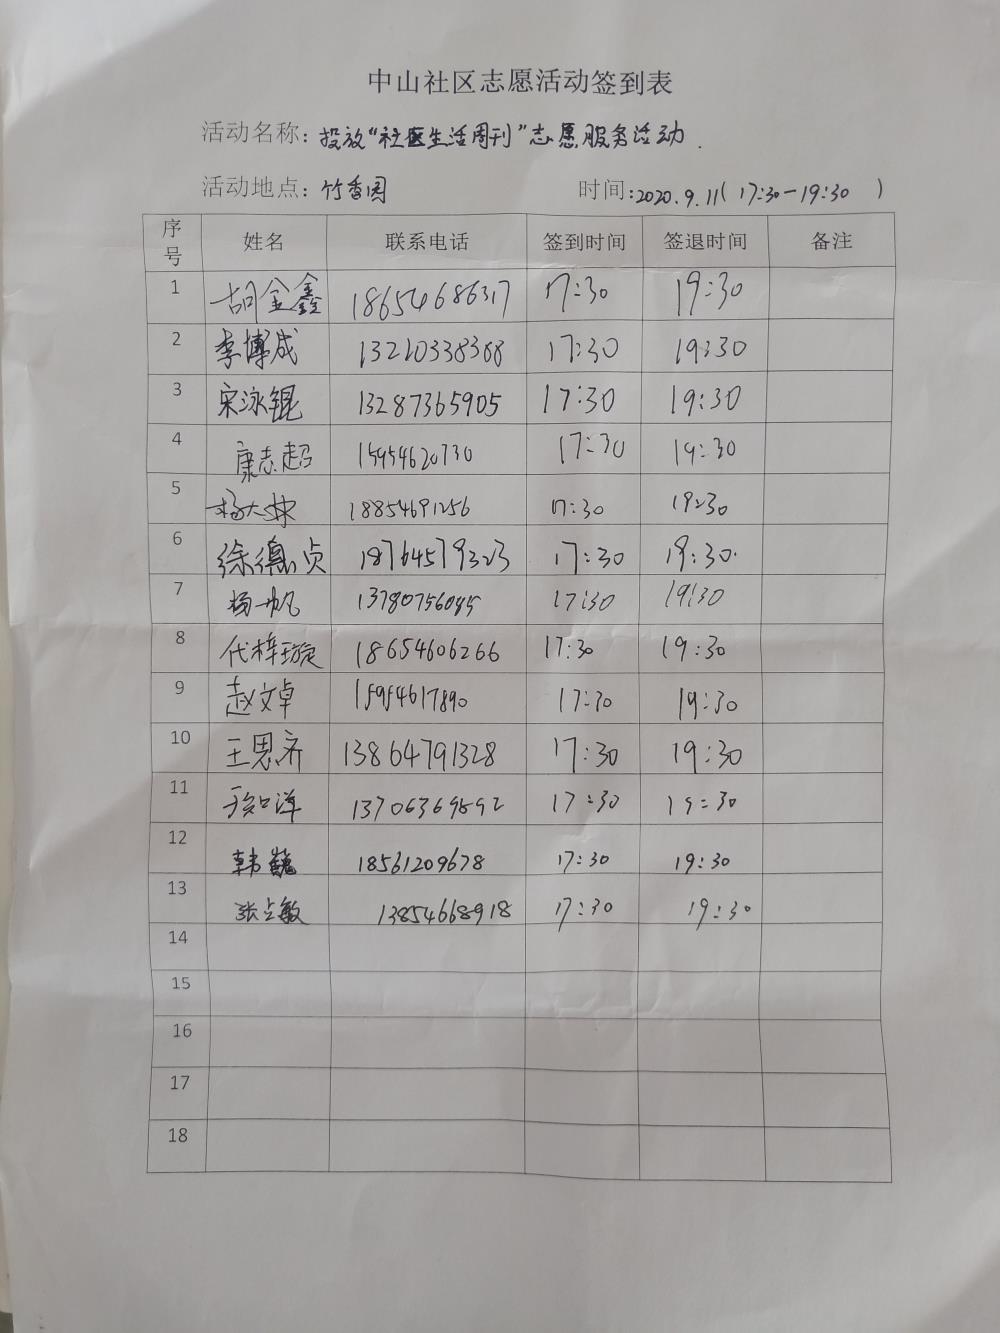 中山社区志愿活动签到表
活动名称：投放“社区生活周刊”志愿服务活动.
活动地点：竹香园 时间:2020.9.11(17:30-19:30)
序号 姓名 联系电话 签到时间 签退时间 备注
1 胡金鑫 18654686317 17:30 19:30
2 李博成 13210338388 17:30 19:30
3 宋泳锟 13287365905 17:30 19:30
4 康志超 15954620730 17:30 19:30
5 18854691256 17:30 19:30
6 徐德贞 18764579323 17:30 19:30.
7 杨一帆 13780756045 17:30 19:30
8 代梓璇 18654606266 17:30 19:30
9 赵文卓 15954617890 17:30 19:30
10 王思齐 13864791328 17:30 19:30
11 13706369592 17:30 19:30
12 韩巍 18561209678 17:30 19:30
13 13854668918 17:30 19:30
14
15
16
17
18